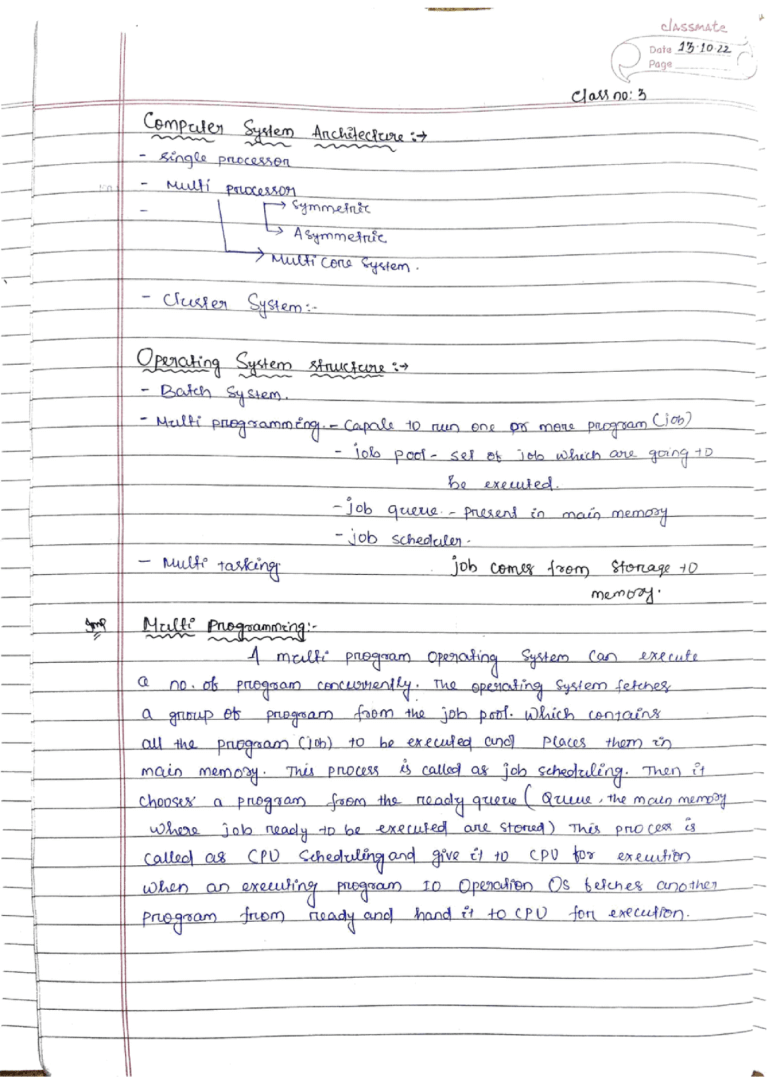 classmate
Date 13.10.22
Page
Class no: 3
Computer System Architecture :→
- single processor
- Multi processor
-
→ Symmetric
→ Asymmetric
→ Multi core System.
- Cluster System:-
Operating System structure :→
- Batch System.
- Multi programming. - Capale to run one or more program (job)
- job pool - set of job which are going to
be executed.
- job queue. - present in main memory
- job scheduler.
- Multi tasking
job comes from storage to
memory.
Imp
Multi Programming:-
A multi program Operating System can execute
a no. of program concurrently. The operating System fetches
a group of program from the job pool. Which contains
all the program (job) to be executed and places them in
main memory. This process is called as job scheduling. Then it
chooses a program from the ready queue (Queue, the main memory
where job ready to be executed are stored) This process is
called as CPU Scheduling and give it to CPU for execution
When an executing program IO Operation OS fetches another
program from ready and hand it to CPU for execution.